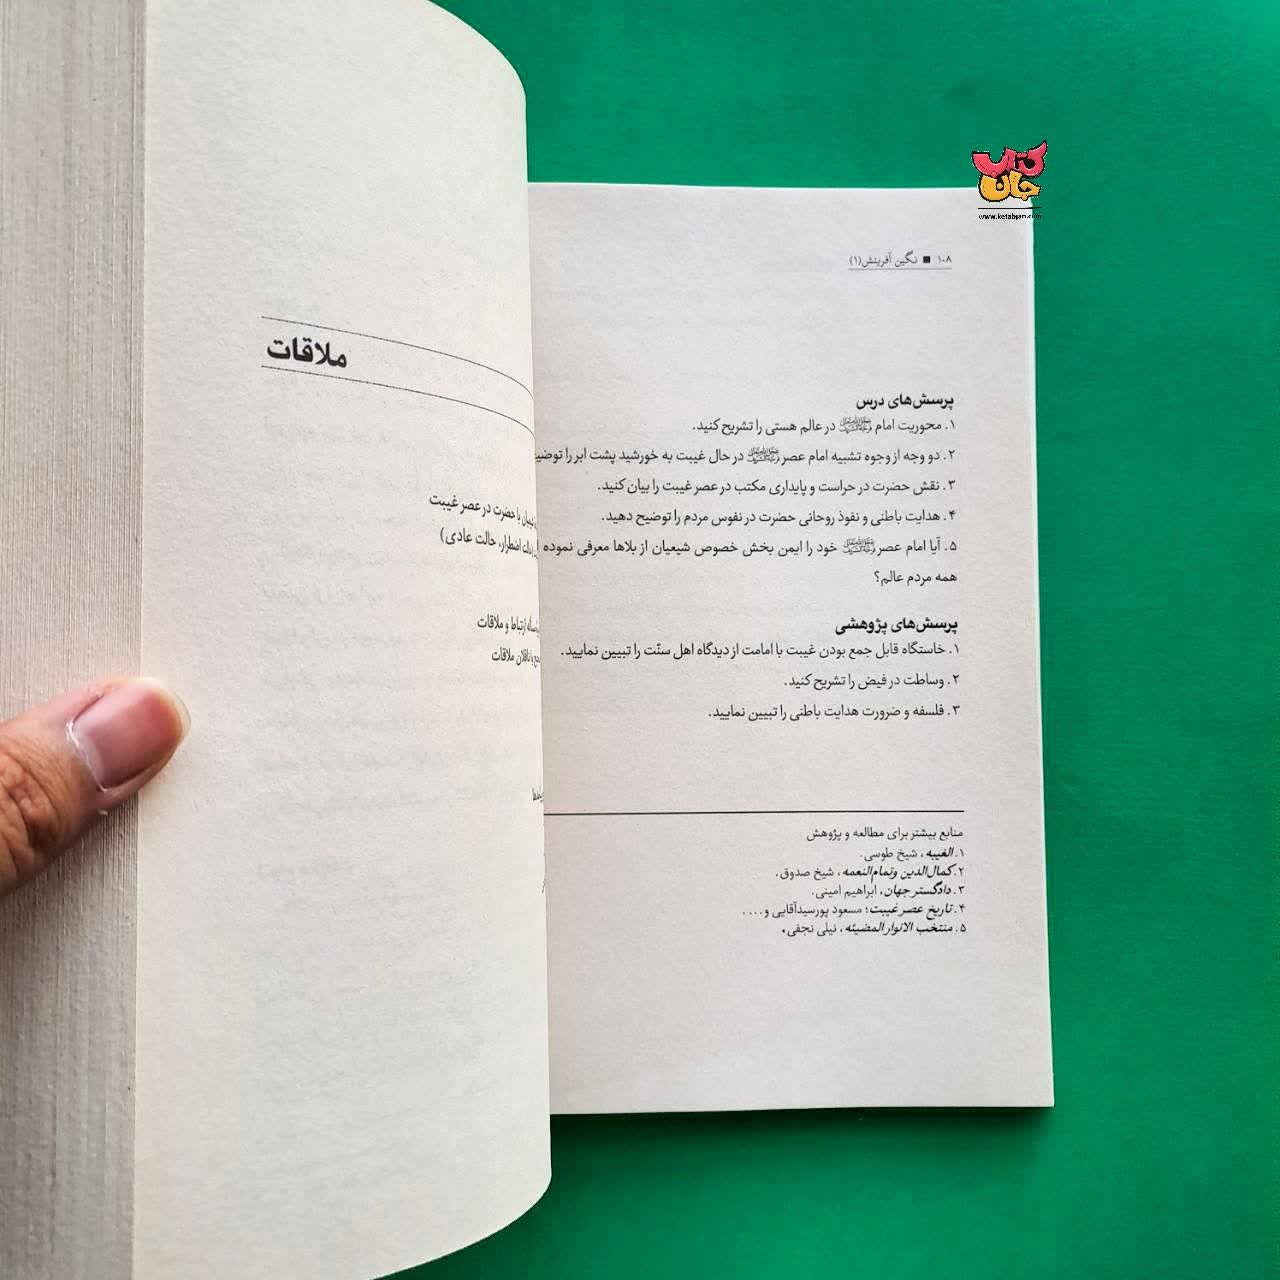 کتاب
جان
www.ketabjan.com
۱۰۸ ■ نگین آفرینش(۱)
پرسش‌های درس
۱. محوریت امام در عالم هستی را تشریح کنید.
۲. دو وجه از وجوه تشبیه امام عصر در حال غیبت به خورشید پشت ابر را
۳. نقش حضرت در حراست و پایداری مکتب در عصر غیبت را بیان کنید.
۴. هدایت باطنی و نفوذ روحانی حضرت در نفوس مردم را توضیح دهید.
۵. آیا امام عصر خود را ایمن بخش خصوص شیعیان از بلاها معرفی نموده
همه مردم عالم؟
پرسش‌های پژوهشی
۱. خاستگاه قابل جمع بودن غیبت با امامت از دیدگاه اهل سنّت را تبیین نمایید.
۲. وساطت در فیض را تشریح کنید.
۳. فلسفه و ضرورت هدایت باطنی را تبیین نمایید.
منابع بیشتر برای مطالعه و پژوهش
۱. الغیبه، شیخ طوسی.
۲. کمال‌الدین وتمام‌النعمه، شیخ صدوق.
۳. دادگستر جهان، ابراهیم امینی.
۴. تاریخ عصر غیبت؛ مسعود پورسیدآقایی و....
۵. منتخب الانوار المضیئه، نیلی نجفی.
ملاقات
با حضرت در عصر غیبت
اضطرار، حالت عادی)
ارتباط و ملاقات
ناقلان ملاقات